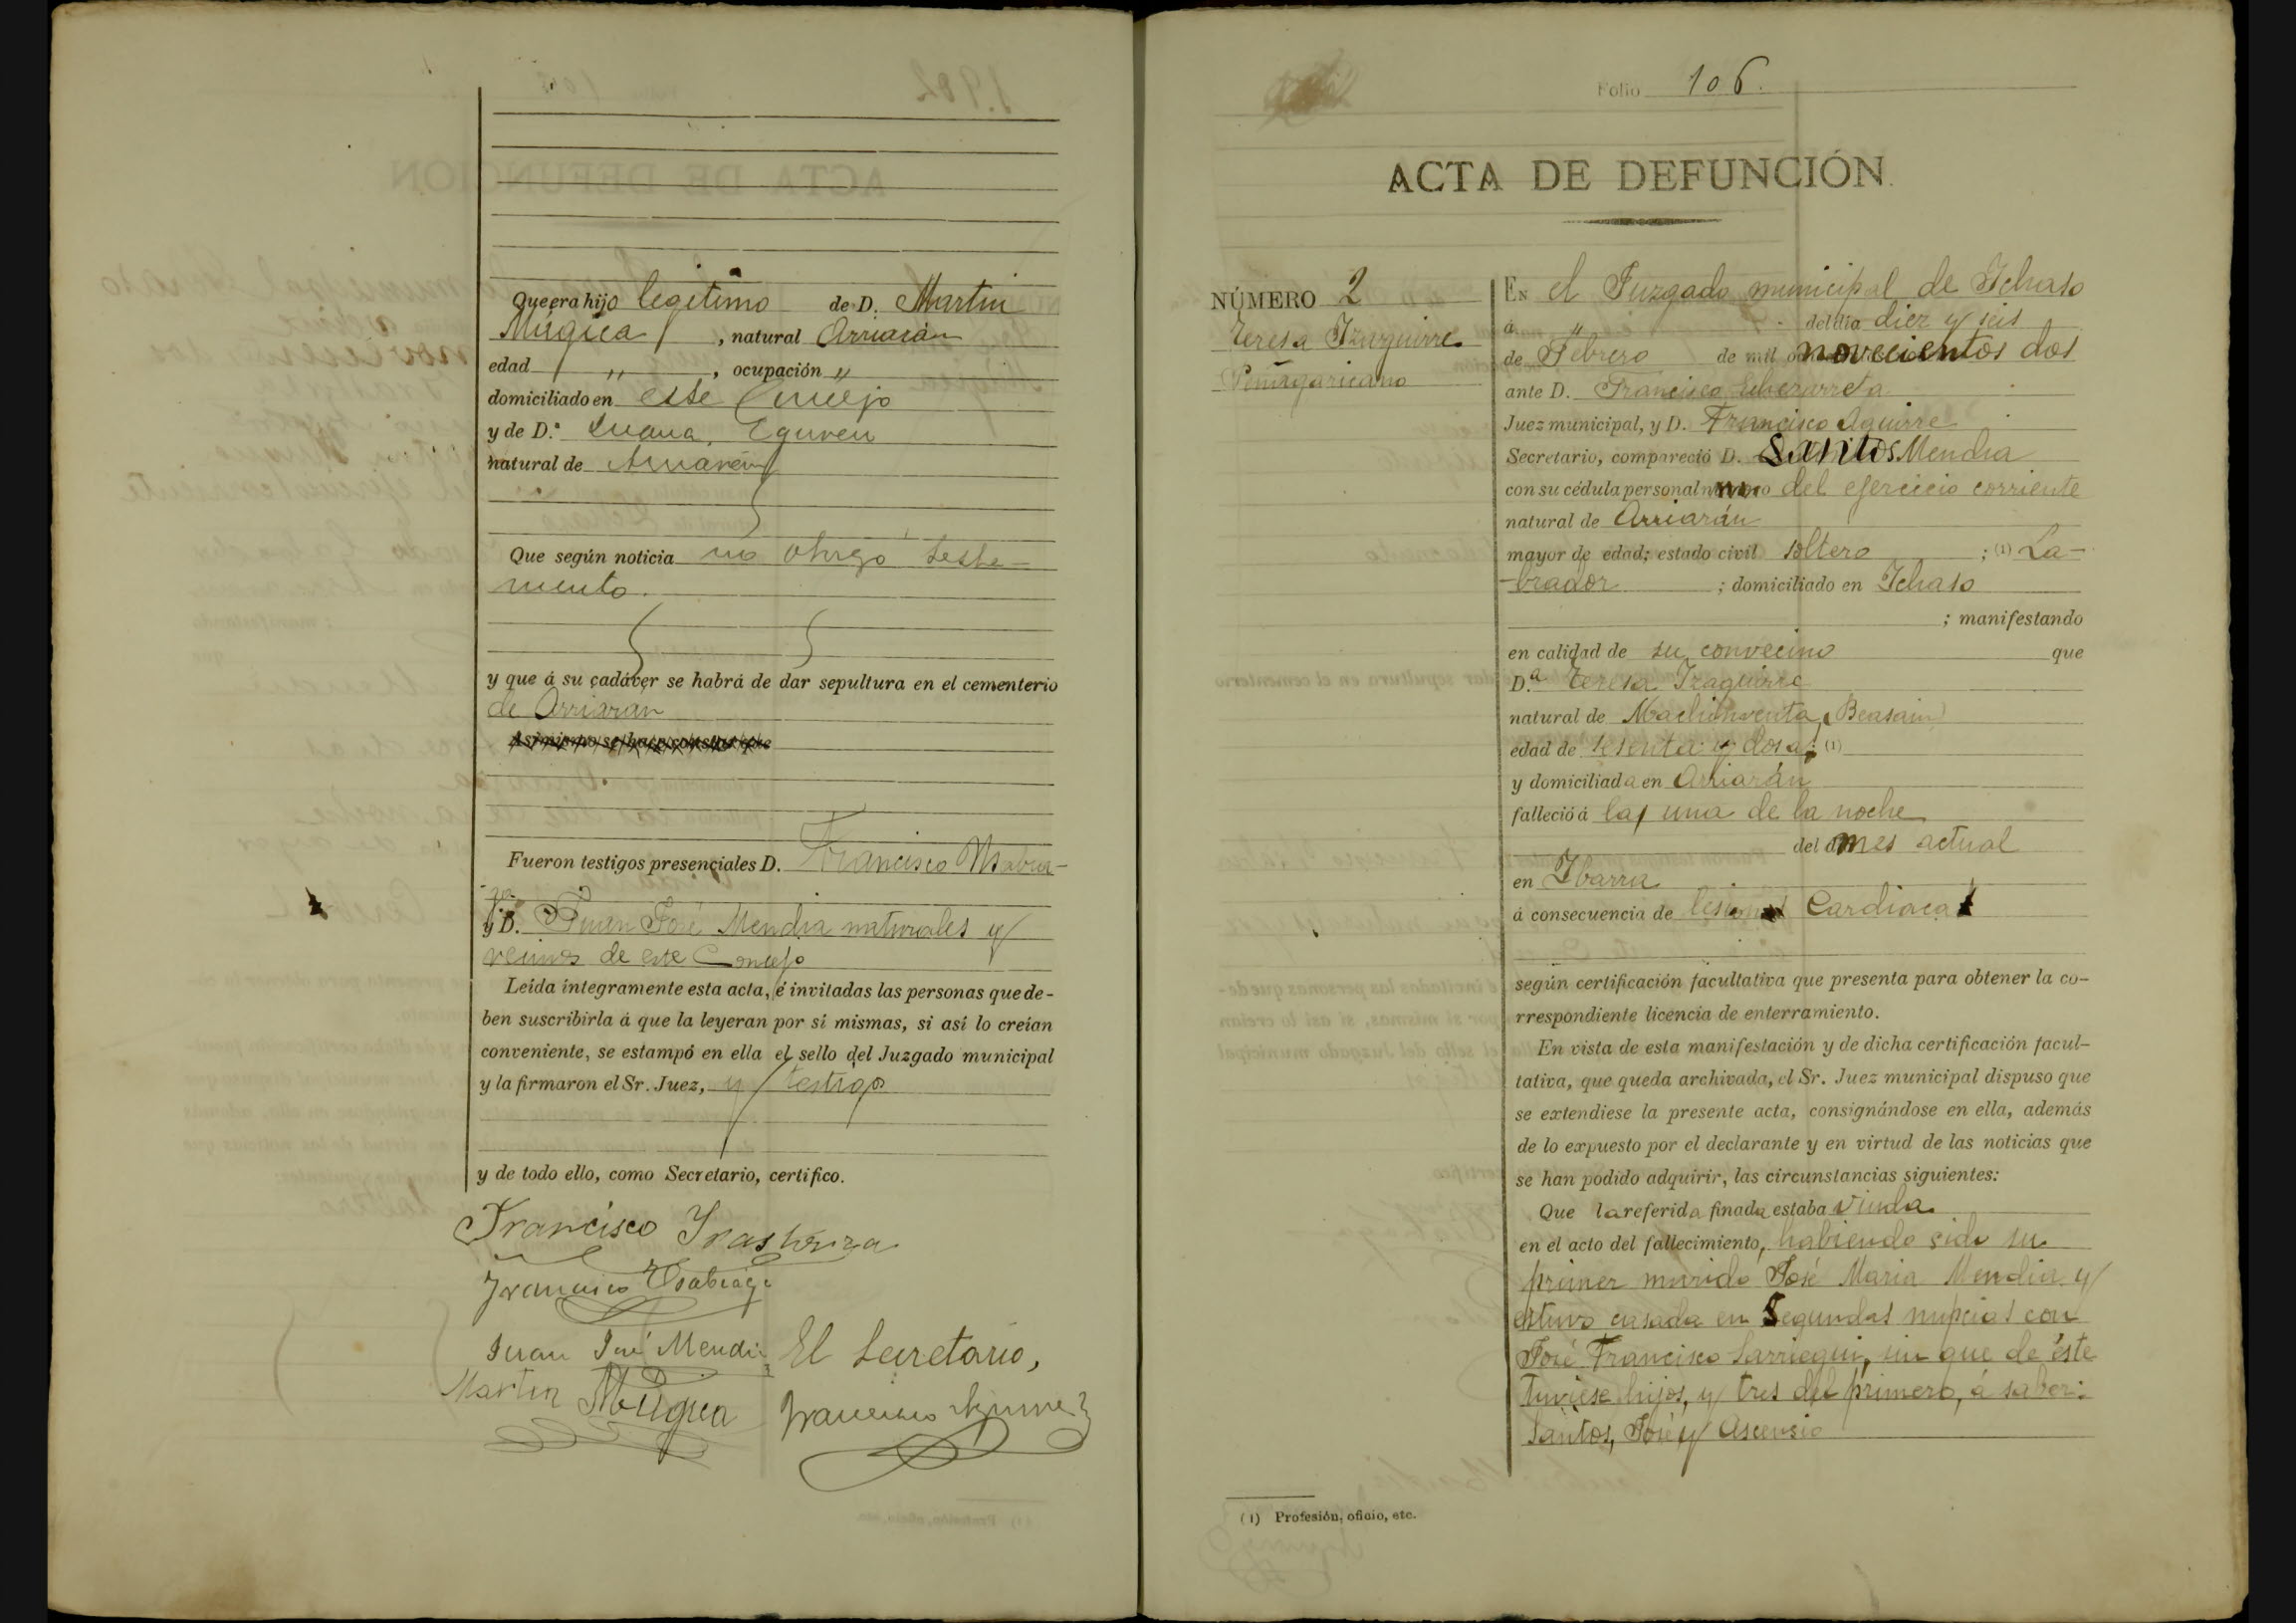 Que era hijo legitimo de D. Martin
Múgica, natural Arriarán
edad " , ocupación "
domiciliado en este Concejo
y de D.ª Juana, Eguren
natural de Arriarán
Que según noticia no otorgó testa-
mento.
y que á su cadáver se habrá de dar sepultura en el cementerio
de Arriaran
Fueron testigos presenciales D. Francisco
y D. Juan José Mendia naturales y
vecinos de este Concejo
Leída íntegramente esta acta, é invitadas las personas que de-
ben suscribirla á que la leyeran por sí mismas, si así lo creían
conveniente, se estampó en ella el sello del Juzgado municipal
y la firmaron el Sr. Juez, y testigos
y de todo ello, como Secretario, certifico.
Francisco Irastorza
Francisco
Juan José Mendia
El Secretario,
Martin Múgica
Francisco Aguirre
Folio 106.
ACTA DE DEFUNCIÓN.
NÚMERO 2
Teresa Izaguirre
Peñagaricano
En el Juzgado municipal de Ichaso
á " del día diez y seis
de Febrero de mil novecientos dos
ante D. Francisco
Juez municipal, y D. Francisco Aguirre
Secretario, compareció D. Santos Mendia
con su cédula personal del ejercicio corriente
natural de Arriarán
mayor de edad; estado civil soltero ; (1) La-
-brador ; domiciliado en Ichaso
; manifestando
en calidad de su convecino que
D.ª Teresa Izaguirre
natural de Machinventa (Beasain)
edad de sesenta y dos a; (1)
y domiciliada en Arriarán
falleció á las una de la noche
del mes actual
en Ibarra
á consecuencia de lesion Cardiaca
según certificación facultativa que presenta para obtener la co-
rrespondiente licencia de enterramiento.
En vista de esta manifestación y de dicha certificación facul-
tativa, que queda archivada, el Sr. Juez municipal dispuso que
se extendiese la presente acta, consignándose en ella, además
de lo expuesto por el declarante y en virtud de las noticias que
se han podido adquirir, las circunstancias siguientes:
Que la referida finada estaba viuda
en el acto del fallecimiento, habiendo sido su
primer marido José Maria Mendia y
estuvo casada en segundas nupcias con
José Francisco Sarriegui, sin que de éste
tuviese hijos, y tres del primero, á saber:
Santos, José y Ascensio
(1) Profesión, oficio, etc.